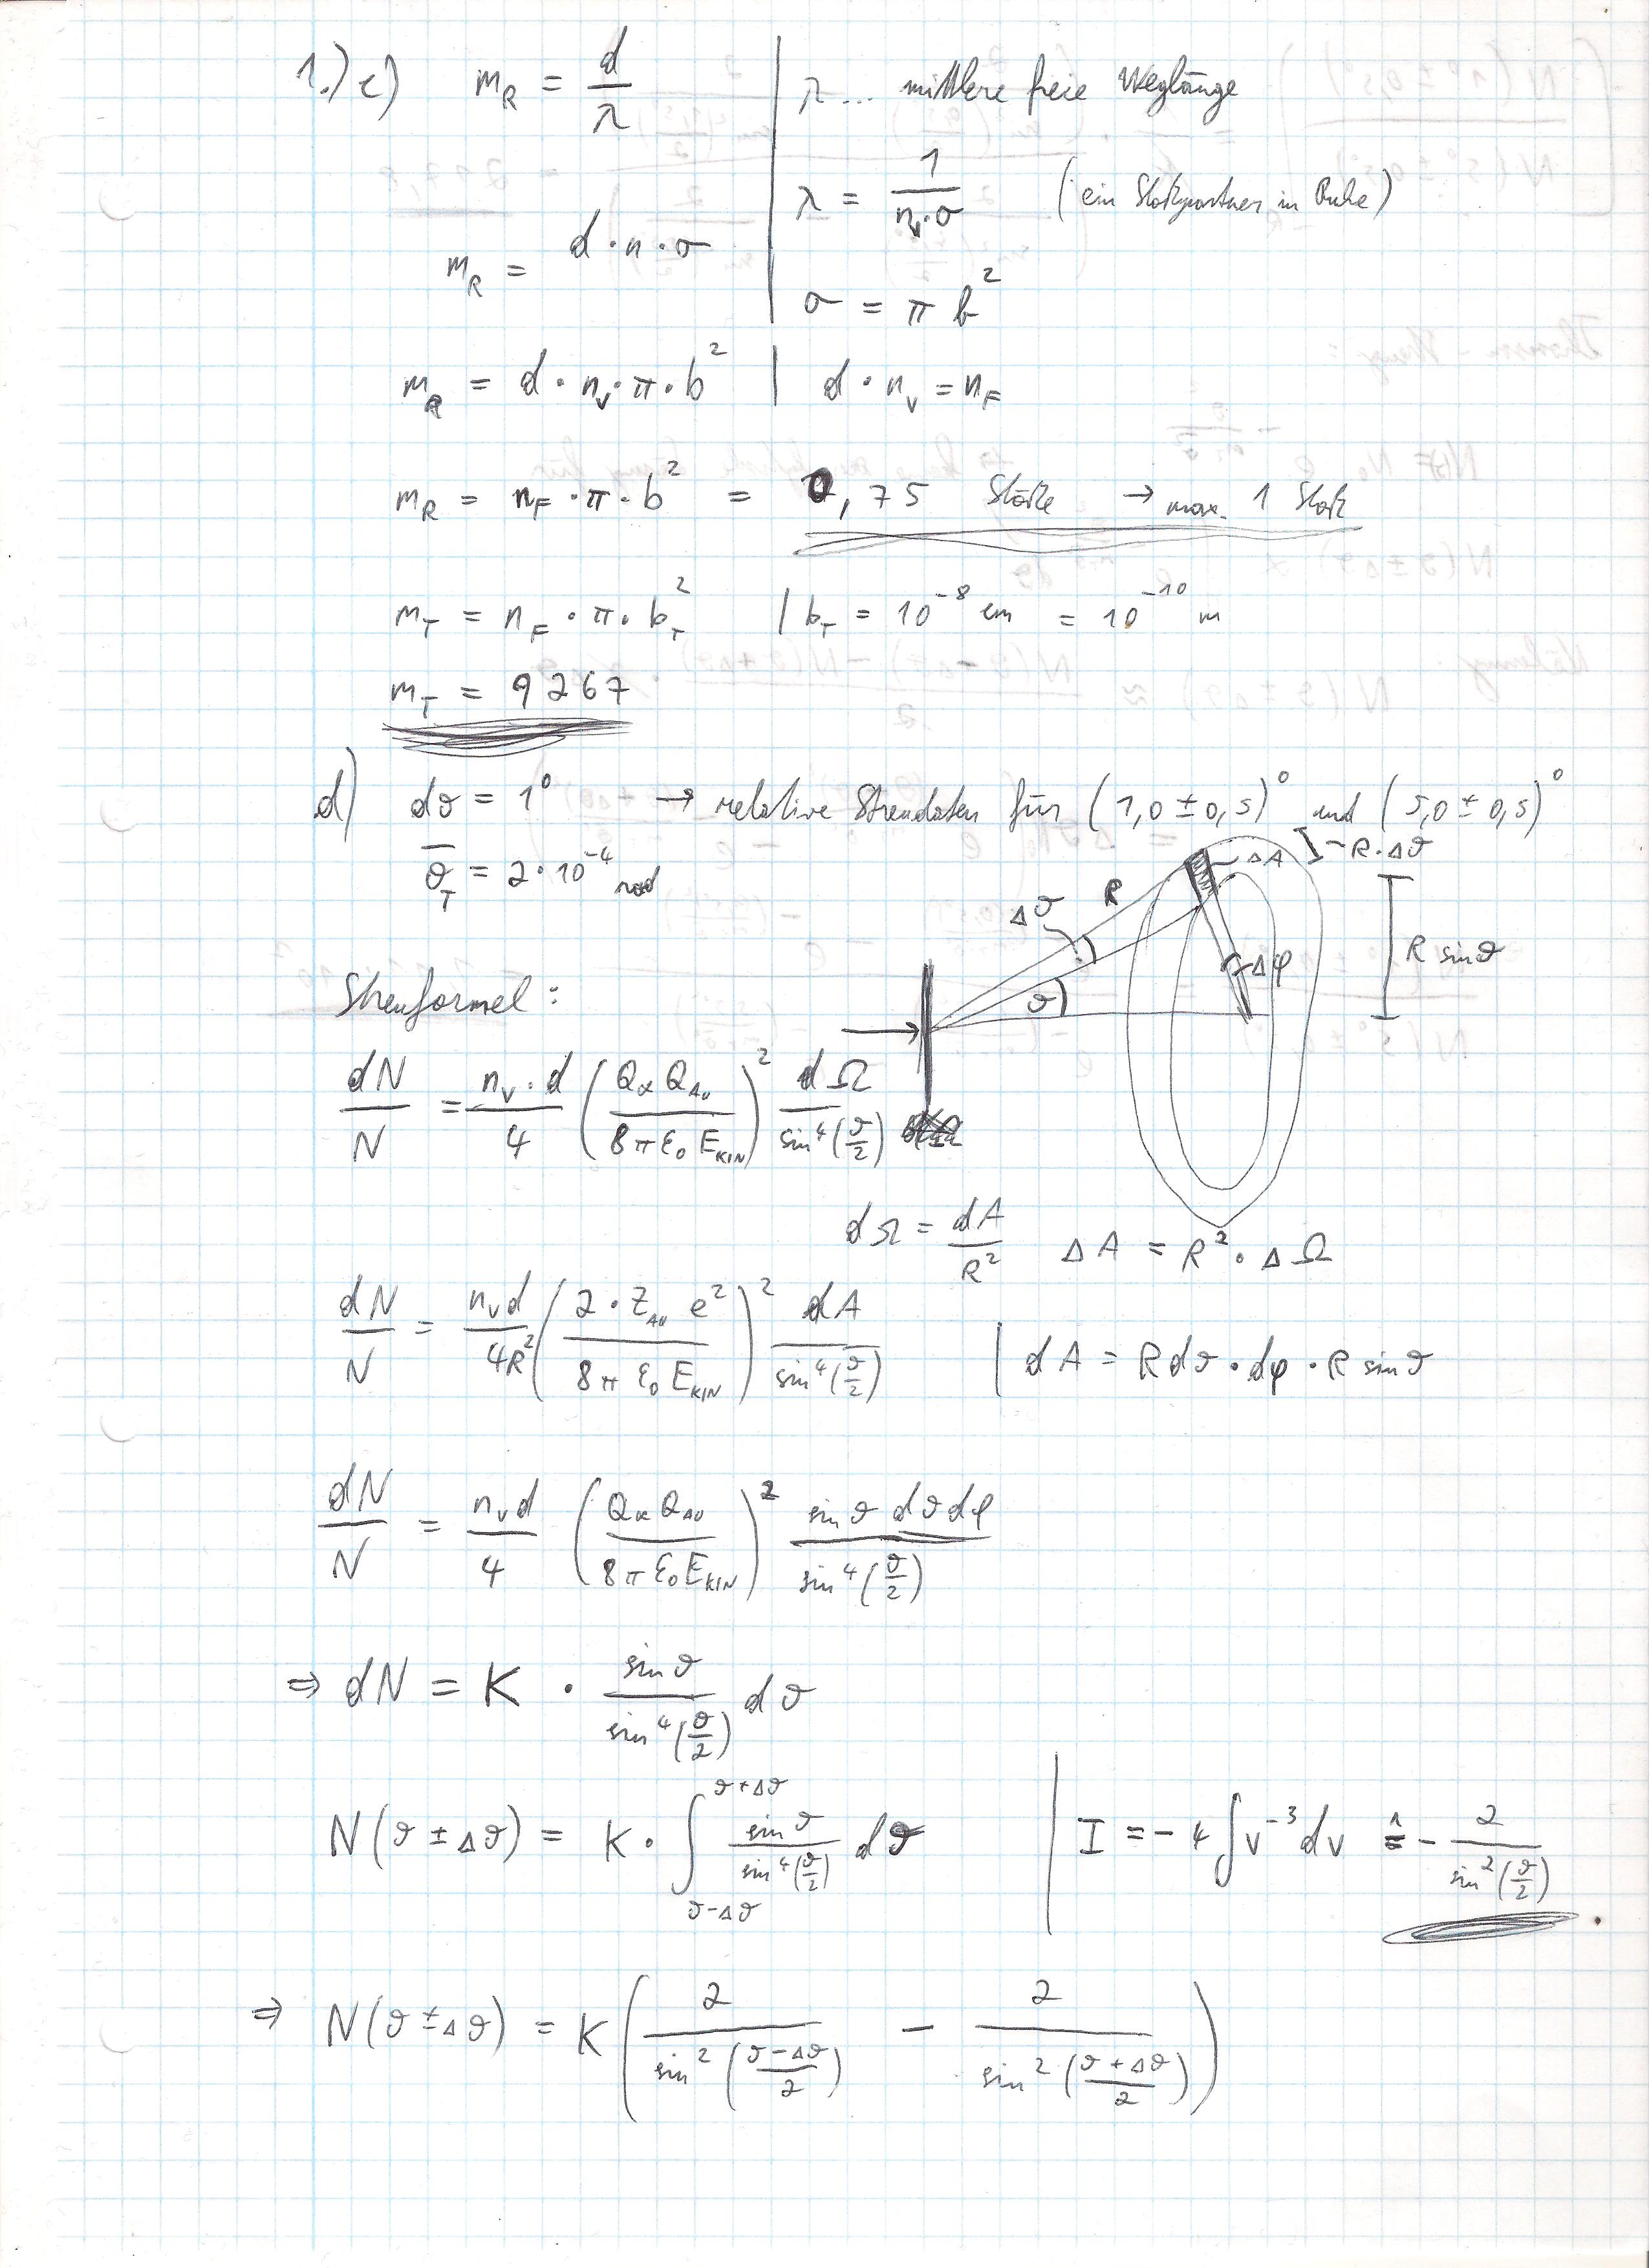 1.) c) m_R = d/λ | λ... mittlere freie Weglänge
λ = 1/(n_v·σ) (ein Stoßpartner in Ruhe)
m_R = d·n·σ
σ = π b²
m_R = d·n_v·π·b² | d·n_v = n_F
m_R = n_F·π·b² = 0,75 Stöße → max. 1 Stoß
m_T = n_F·π·b_T² | b_T = 10⁻⁸ cm = 10⁻¹⁰ m
m_T = 9267
d) dϑ = 1° → relative Streudaten für (1,0 ± 0,5)° und (5,0 ± 0,5)°
ϑ̅_T = 2·10⁻⁴ rad
ΔA R·Δϑ
Δϑ R
R sinϑ
Δφ
ϑ
Streuformel:
dN/N = (n_v·d)/4 (Q_α Q_Au / 8π ε₀ E_KIN)² dΩ/sin⁴(ϑ/2)
dΩ = dA/R² ΔA = R²·ΔΩ
dN/N = (n_v d)/(4R²) (2·Z_Au e² / 8π ε₀ E_KIN)² dA/sin⁴(ϑ/2) | dA = R dϑ·dφ·R sinϑ
dN/N = (n_v d)/4 (Q_α Q_Au / 8π ε₀ E_KIN)² (sinϑ dϑ dφ)/sin⁴(ϑ/2)
⇒ dN = K · sinϑ/sin⁴(ϑ/2) dϑ
N(ϑ ± Δϑ) = K·∫_{ϑ-Δϑ}^{ϑ+Δϑ} sinϑ/sin⁴(ϑ/2) dϑ | I = -4∫v⁻³dv ≙ - 2/sin²(ϑ/2)
⇒ N(ϑ ± Δϑ) = K(2/sin²((ϑ-Δϑ)/2) - 2/sin²((ϑ+Δϑ)/2))